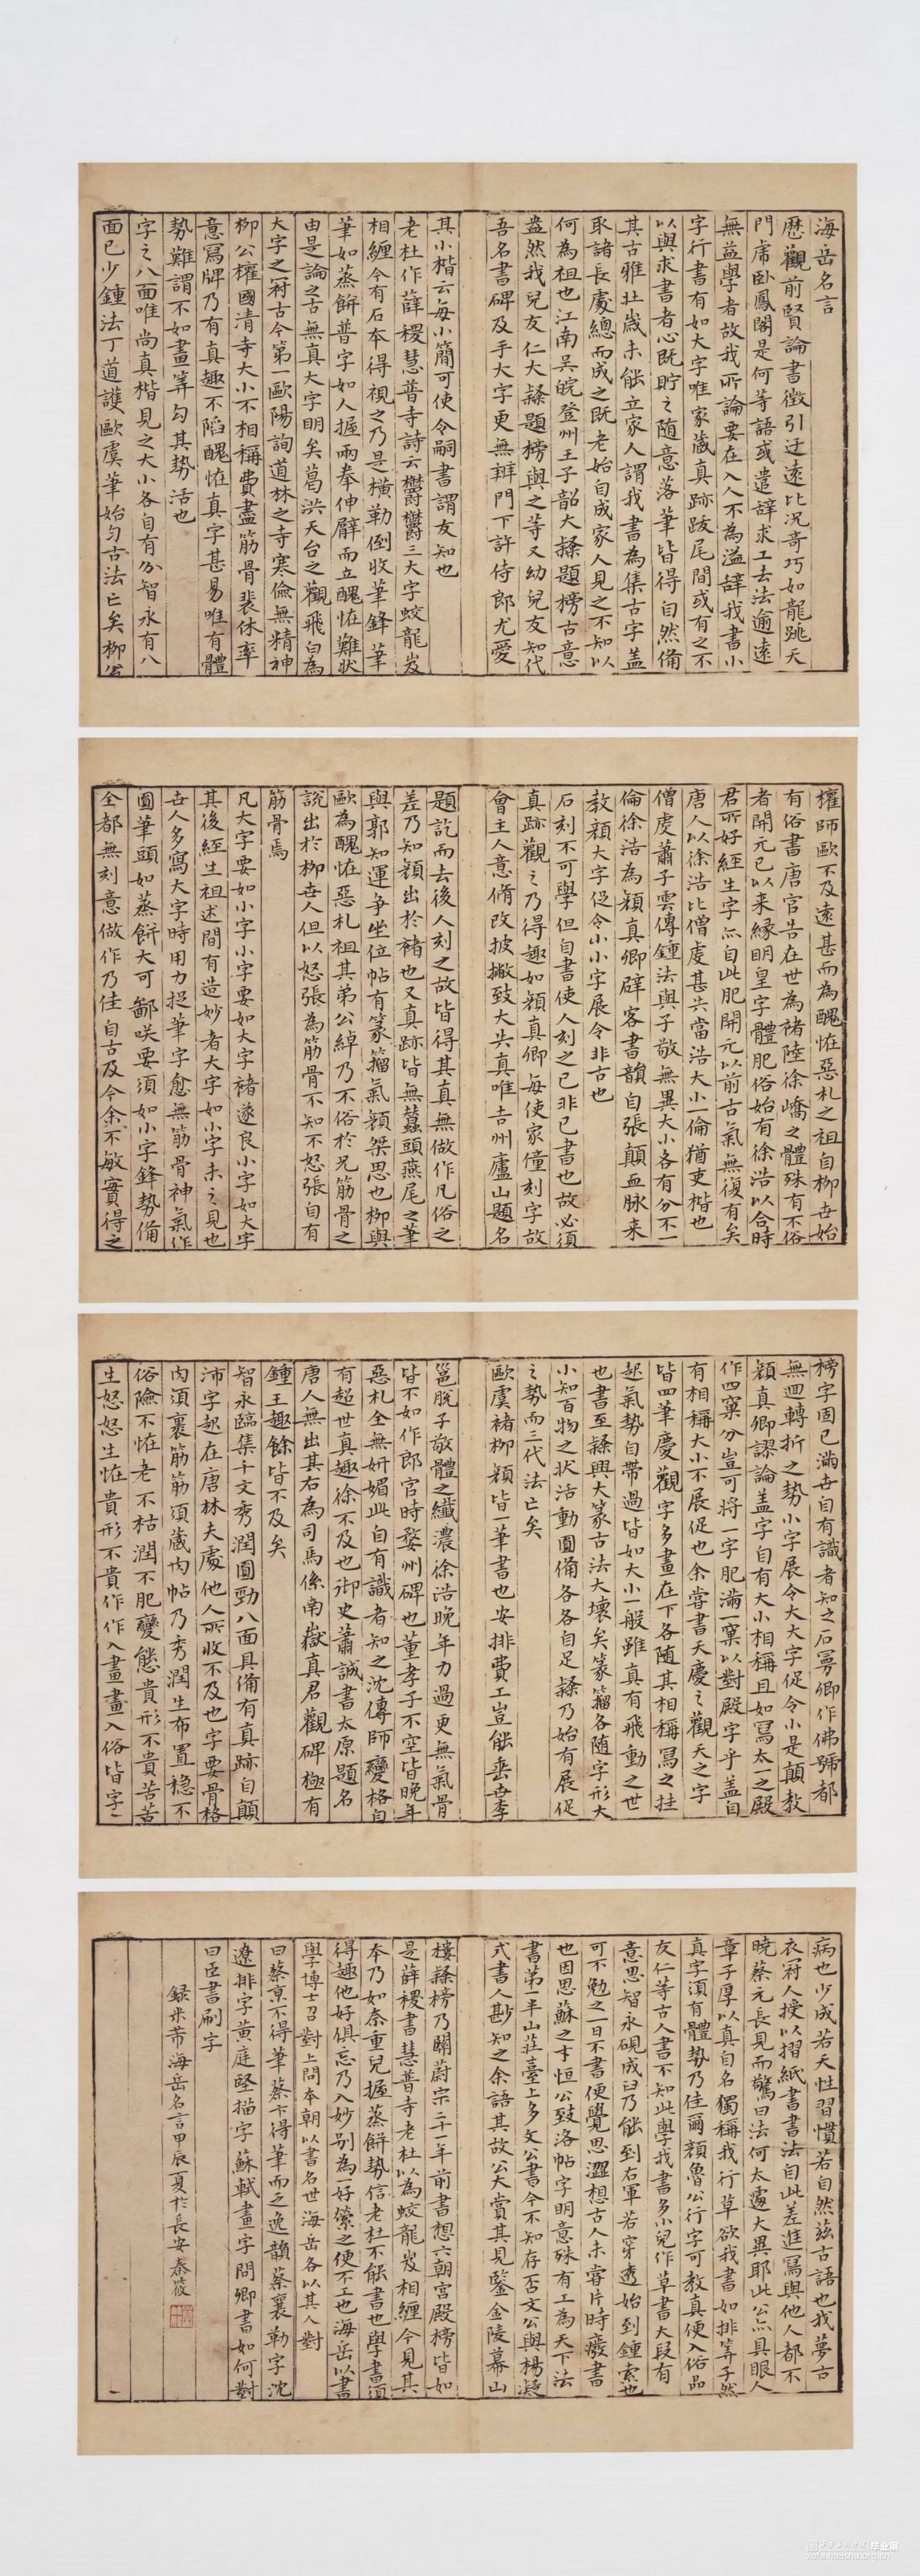 海岳名言
歷觀前賢論書徵引迂遠比況奇巧如龍跳天
門席卧鳳閣是何等語或遣辭求工去法逾遠
無益學者故我所論要在入人不為溢辭我書小
字行書有如大字唯家藏真跡跋尾間或有之不
以與求書者心既貯之隨意落筆皆得自然備
其古雅壯歲未能立家人謂我書為集古字盖
取諸長處總而成之既老始自成家人見之不知以
何為祖也江南吳皖登州王子韶大隸題榜古意
盎然我兒友仁大隸題榜與之等又幼兒友知代
吾名書碑及手大字更無辨門下許侍郎尤愛
其小楷云每小簡可使令嗣書謂友知也
老杜作薛稷慧普寺詩云欝欝三大字蛟龍岌
相纏今有石本得視之乃是橫勒倒收筆鋒筆
筆如蒸餅普字如人握兩拳伸臂而立醜怪難狀
由是論之古無真大字明矣葛洪天台之觀飛白為
大字之冠古今第一歐陽詢道林之寺寒儉無精神
柳公權國清寺大小不相稱費盡筋骨裴休率
意寫牌乃有真趣不陷醜怪真字甚易唯有體
勢難謂不如畫筭勾其勢活也
字之八面唯尚真楷見之大小各自有分智永有八
面已少鍾法丁道護歐虞筆始勻古法亡矣柳公
權師歐不及遠甚而為醜怪惡札之祖自柳世始
有俗書唐官告在世為褚陸徐嶠之體殊有不俗
者開元已以來緣明皇字體肥俗始有徐浩以合時
君所好經生字亦自此肥開元以前古氣無復有矣
唐人以徐浩比僧虔甚失當浩大小一倫猶吏楷也
僧虔蕭子雲傳鍾法與子敬無異大小各有分不一
倫徐浩為顏真卿辟客書韻自張顛血脉來
教顏大字促令小小字展令非古也
石刻不可學但自書使人刻之已非己書也故必須
真跡觀之乃得趣如顏真卿每使家僮刻字故
會主人意脩改披撇致大失真唯吉州廬山題名
題訖而去後人刻之故皆得其真無做作凡俗之
差乃知顏出於褚也又真跡皆無蠶頭燕尾之筆
與郭知運爭坐位帖有篆籀氣顏桀思也柳與
歐為醜怪惡札祖其弟公綽乃不俗於兄筋骨之
說出於柳世人但以怒張為筋骨不知不怒張自有
筋骨焉
凡大字要如小字小字要如大字褚遂良小字如大字
其後經生祖述間有造妙者大字如小字未之見也
世人多寫大字時用力捉筆字愈無筋骨神氣作
圓筆頭如蒸餅大可鄙咲要須如小字鋒勢備
全都無刻意做作乃佳自古及今余不敏實得之
榜字固已滿世自有識者知之石曼卿作佛號都
無迴轉折之勢小字展令大大字促令小是顛教
顏真卿謬論盖字自有大小相稱且如寫太一之殿
作四窠分豈可將一字肥滿一窠以對殿字乎盖自
有相稱大小不展促也余嘗書天慶之觀天之字
皆四筆慶觀字多畫在下各隨其相稱寫之挂
起氣勢自帶過皆如大小一般雖真有飛動之世
也書至隸興大篆古法大壞矣篆籀各隨字形大
小知百物之状活動圓備各各自足隸乃始有展促
之勢而三代法亡矣
歐虞褚柳顏皆一筆書也安排費工豈能垂世李
邕脫子敬體之纖濃徐浩晚年力過更無氣骨
皆不如作郎官時婺州碑也董孝子不空皆晚年
惡札全無妍媚此自有識者知之沈傳師變格自
有超世真趣徐不及也御史蕭誠書太原題名
唐人無出其右為司馬係南嶽真君觀碑極有
鍾王趣餘皆不及矣
智永臨集千文秀潤圓勁八面具備有真跡自顛
沛字起在唐林夫處他人所收不及也字要骨格
肉須裹筋筋須藏肉帖乃秀潤生布置穩不
俗險不怪老不枯潤不肥變態貴形不貴苦苦
生怒怒生怪貴形不貴作作入畫畫入俗皆字之
病也少成若天性習慣若自然茲古語也我夢古
衣冠人授以摺紙書書法自此差進寫與他人都不
曉蔡元長見而驚曰法何太遽大異耶此公亦具眼人
章子厚以真自名獨稱我行草欲我書如排筭子然
真字須有體勢乃佳爾顏魯公行字可教真便入俗品
友仁等古人書不知此學我書多小兒作草書大段有
意思智永硯成臼乃能到右軍若穿透始到鍾索也
可不勉之一日不書便覺思澀想古人未嘗片時癈書
也因思蘇之才恒公致洛帖字明意殊有工為天下法
書第一半山莊臺上多文公書今不知存否文公與楊凝
式書人尠知之余語其故公大賞其見鑒金陵幕山
樓隸榜乃關蔚宗二十一年前書想六朝宮殿榜皆如
是薛稷書慧普寺老杜以為蛟龍岌相纏今見其
本乃如奈重兒握蒸餅勢信老杜不能書也學書須
得趣他好俱忘乃入妙別為一好縈之便不工也海岳以書
學博士召對上問本朝以書名世海岳各以其人對
曰蔡京不得筆蔡卞得筆而乏逸韻蔡襄勒字沈
遼排字黃庭堅描字蘇軾畫字問卿書如何對
曰臣書刷字
録米芾海岳名言甲辰夏於長安秦筱
xafa.meishu.org.cn